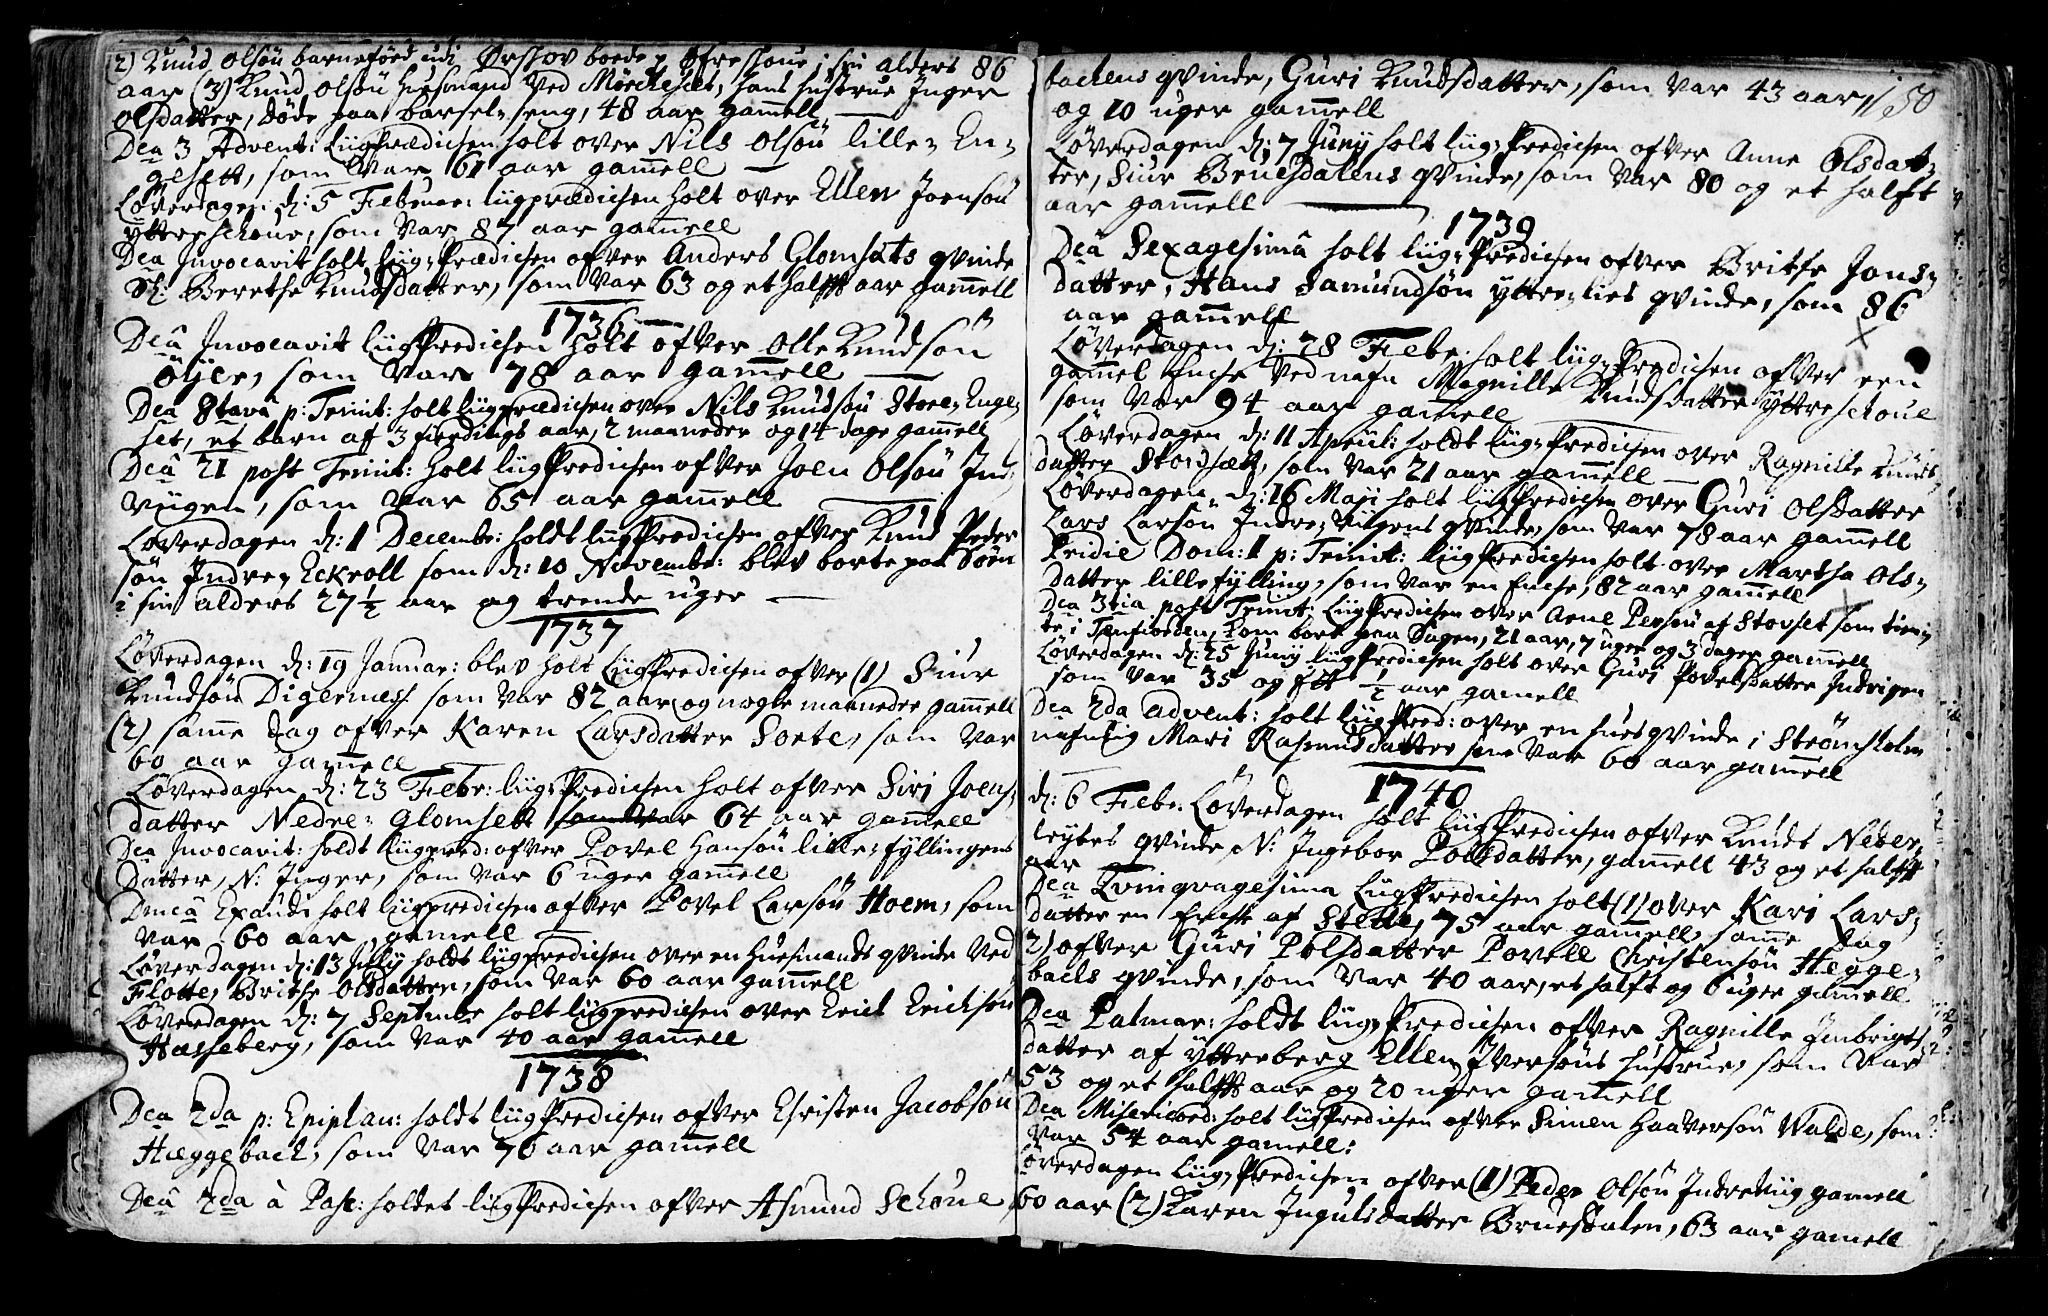 (2) Knud Olsøn barneføed udi Ørskov boede p Øfreskoue i sin alders 86
aar (3) Knud Olsøn Husmand ved Mørcheset, hans hustrue Inger
Olsdatter, døde paa barsel-seng, 48 aar gam̄ell
Dca 3 Advent: Liigprædichen holt over Nils Olsøn lille-En-
gesett, som var 61 aar gam̄ell
Løverdagen d: 5 Februar: liigprædichen holt over Ellen Joensøn
ytterschoue, som var 87 aar gam̄ell
Dca Invocavit holt Liig-Prædichen ofver Anders Glomsæts qvinde
Sl: Berethe Knudsdatter, som var 63 og et halfft aar gam̄ell
1736
Dca Invocavit LiigPredichen holt ofver Olle Knudsøn
øijer, som var 78 aar gam̄ell
Dca 8tava p: Trinit: holt Liigprædichen over Nils Knudsøn Store-Enge-
set, et barn af 3 fierdings aar, 2 maaneder og 14 dage gam̄ell
Dca 21 post Trinit: holt LiigPredichen ofver Joen Olsøn Ind-
viigen, som var 65 aar gam̄ell
Løverdagen d: 1 Decembr: holdt LiigPredichen ofver Knud Peder
søn Indre-Eckroll som d: 10 Novembr: blev borte paa Søen
i sin alders 27½ aar og trende uger
1737
Løverdagen d: 19 Januar: blev holt LiigPredichen ofver (1) Siur
Knudsøn Digerness som var 82 aar og nogle maaneder gam̄ell
(2) sam̄e dag ofver Karen Larsdatter Sorte, som var
60 aar gam̄ell
Løverdagen d: 23 Febr: liig-Predichen holt ofver Siri Joens-
datter Nedre-Glomsett som var 64 aar gam̄ell
Dca Invocavit: holdt Liigpred: ofver Povel Hansøn lille-fyllingens
Datter, N: Inger, som var 6 uger gam̄ell
Dmca Exaudi holt liigpredichen ofver Povel Larsøn Hoem, som
var 60 aar gam̄ell
Løverdagen d: 13 July holdt liigpredichen over en Huusmands qvinde ved
Flotte, Brithe Olsdatter, som var 60 aar gam̄ell
Løverdagen d: 7 Septmbr holt liigpredichen over Erich Erichsøn
Hasseberg, som var 40 aar gam̄ell
1738
Dca 2da p: Epiphan: holdt LiigPredichen ofver Christen Jacobsøn
Heggebach, som var 76 aar gam̄ell
Dca 2da à Pasc: holdet liigPredichen ofver Asmund Schoue
bachens qvinde, Guri Knudsdatter, som var 43 aar 150
og 10 uger gam̄ell
Løverdagen d: 7 Juny holt liig-Predichen ofver Anne Olsdat-
ter, Siur Bruesdalens qvinde, som var 80 og et halft
aar gam̄ell
1739
Dca Sexagesimâ holt liig-Predichen ofver Brithe Jons-
datter, Hans Samundsøn yttre-lies qvinde, som 86
aar gam̄ell
Løverdagen d: 28 Febr: holt liig-Predichen ofver een
gam̄el Enche ved nafn Magnille Knudsdatter yttreschoue
som var 94 aar gam̄ell
Løverdagen d: 11 Apriil: holdt liig-Predichen over Ragnille Knuds
datter Stordsæth, som var 21 aar gam̄ell
Løverdagen d: 16 Maji holt liigPredichen over Guri Olsdatter
Lars Larsøn Indre-Viigens qvinde, som var 78 aar gam̄ell
Pridie Dom: 1 p: Trinit: liigPredichen holt over Martha Ols-
datter lillefylling, som var en Enche, 82 aar gam̄ell
Dca 3tia post Trinit: LiigPredichen over Arne Persøn af Stovset som tien-
te i Tenfiorden, kom bort paa Søgen, 21 aar, 7 uger og 3 dager gam̄ell
Løverdagen d: 25 Juny liigPredichen holt over Guri Povelsdatter Indrigen
som var 35 og ett ½ aar gam̄ell
Dca 2da Advent: holt liigPred: over en huusqvinde i Strømsholm
nafnlig Mari Rasmusdatter som var 60 aar gam̄ell
1740
d: 6 Febr: Løverdagen holt LiigPredichen ofver Knudt Neder-
leytes qvinde N: Ingebor Polsdatter, gam̄ell 43 og et halfft
aar
Dca Qvinqvagesima LiigPredichen holt (1) over Kari Lars-
datter en Enche af Stette, 75 aar gam̄ell, sam̄e dag
2) ofver Guri Polsdatter Povell Christensøn Hegge-
bachs qvinde, som var 40 aar, et halft og 6 uger gam̄ell
Dca Palmar: holdt liig-Predichen ofver Ragnille Imbrigts
datter af yttreberg Ellen Iversøns hustrue, som var
53 og et halfft aar og 20 uger gam̄ell
Dca Misericord: holt liigPredichen ofver Simen Haaversøn Walde, som
var 54 aar gam̄ell:
Løverdagen Liig-Predichen ofver (1) Peder Olsøn Indreviig gam̄ell
60 aar (2) Karen Ingulsdatter Bruesdalen, 63 aar gam̄ell